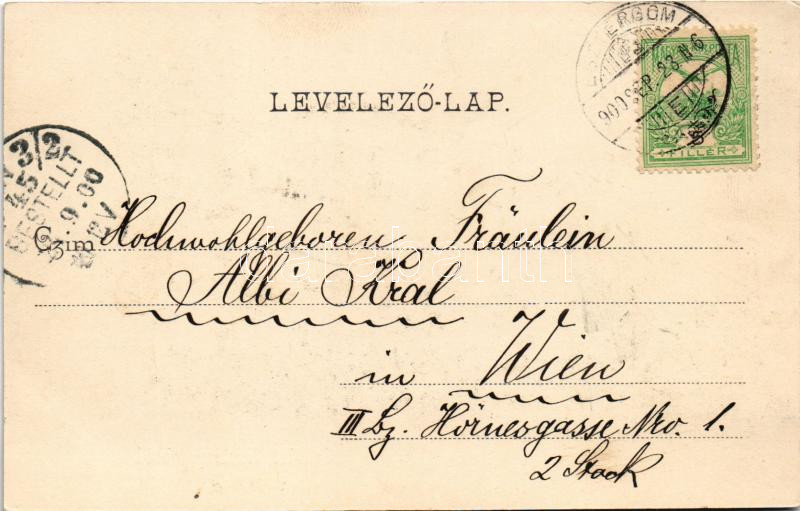 LEVELEZŐ-LAP.
ERGOM
900 SEP 23
FILLER
3/2
45
BESTELLT
9.00
Czim Hochwohlgeboren Fräulein
Albi Kral
in Wien
III Bz. Hörnesgasse Nro. 1.
2 Stock